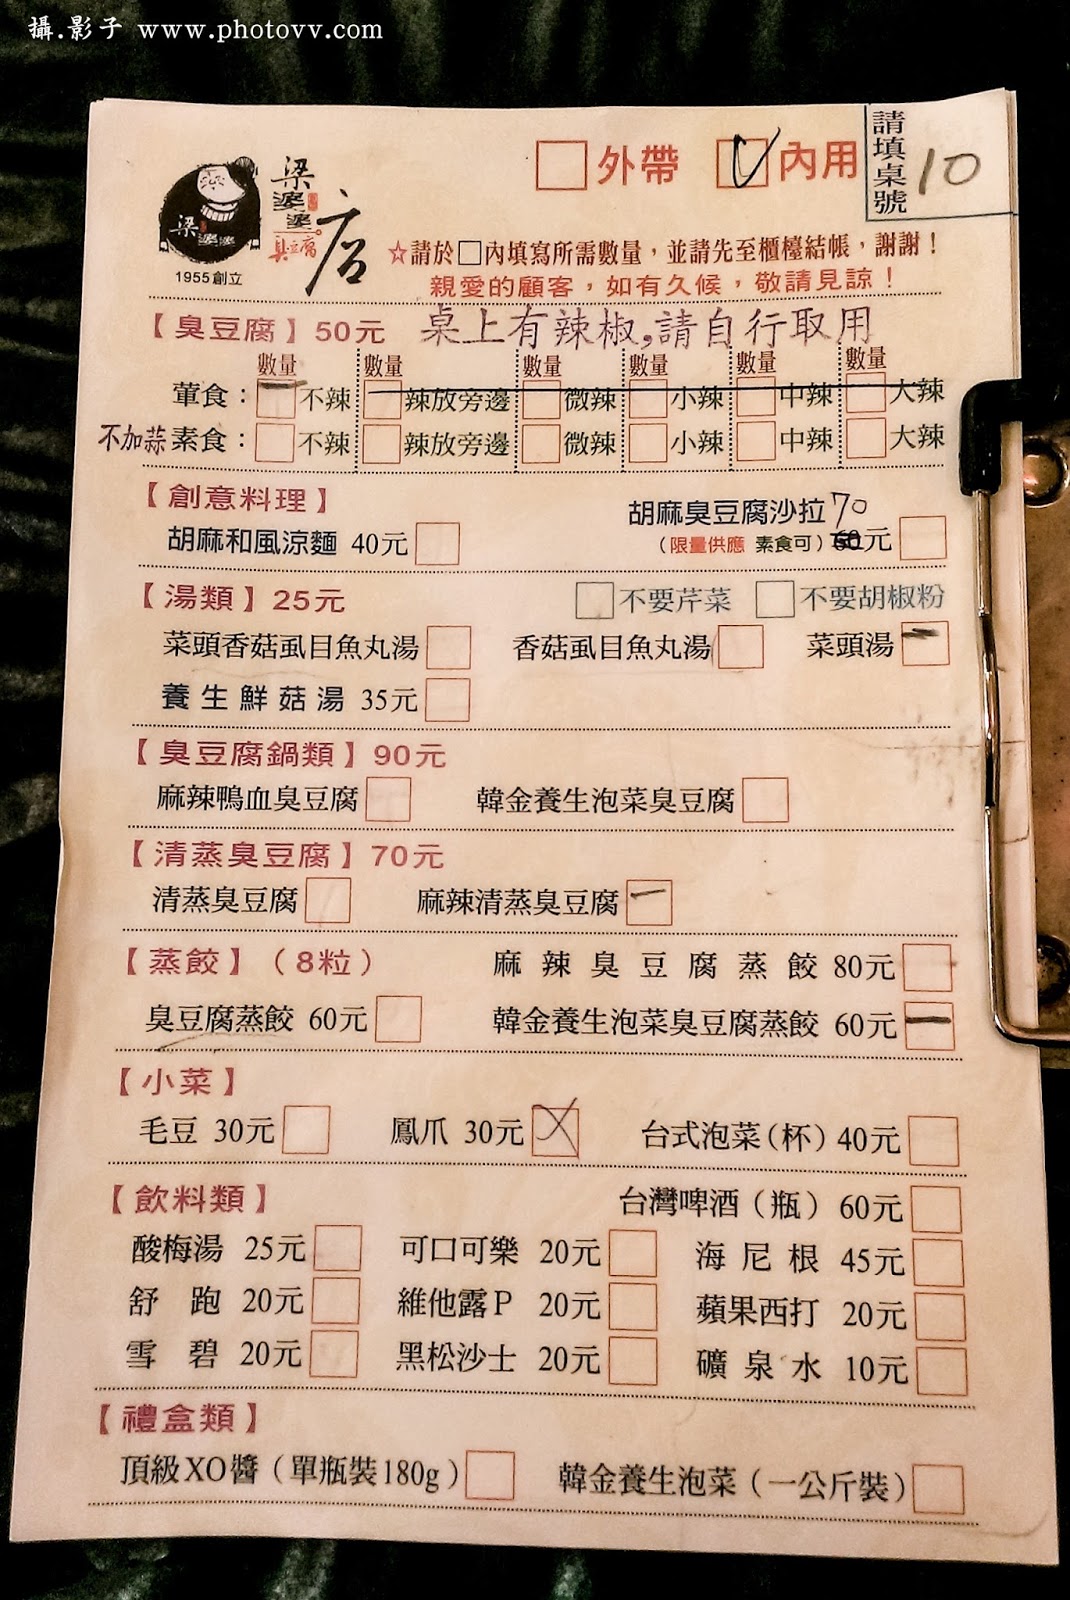 攝.影子 www.photovv.com
請填桌號 10
外帶 內用
梁婆婆
臭豆腐
店
梁婆婆
1955創立
☆請於□內填寫所需數量，並請先至櫃檯結帳，謝謝！
親愛的顧客，如有久候，敬請見諒！
【臭豆腐】50元 桌上有辣椒,請自行取用
數量 數量 數量 數量 數量 數量
葷食： 不辣 辣放旁邊 微辣 小辣 中辣 大辣
不加蒜 素食： 不辣 辣放旁邊 微辣 小辣 中辣 大辣
【創意料理】
胡麻和風涼麵 40元 胡麻臭豆腐沙拉 70
（限量供應 素食可）60元
【湯類】25元 不要芹菜 不要胡椒粉
菜頭香菇虱目魚丸湯 香菇虱目魚丸湯 菜頭湯
養生鮮菇湯 35元
【臭豆腐鍋類】90元
麻辣鴨血臭豆腐 韓金養生泡菜臭豆腐
【清蒸臭豆腐】70元
清蒸臭豆腐 麻辣清蒸臭豆腐
【蒸餃】（8粒） 麻辣臭豆腐蒸餃 80元
臭豆腐蒸餃 60元 韓金養生泡菜臭豆腐蒸餃 60元
【小菜】
毛豆 30元 鳳爪 30元 台式泡菜(杯) 40元
【飲料類】 台灣啤酒（瓶） 60元
酸梅湯 25元 可口可樂 20元 海尼根 45元
舒跑 20元 維他露P 20元 蘋果西打 20元
雪碧 20元 黑松沙士 20元 礦泉水 10元
【禮盒類】
頂級XO醬（單瓶裝180g） 韓金養生泡菜（一公斤裝）